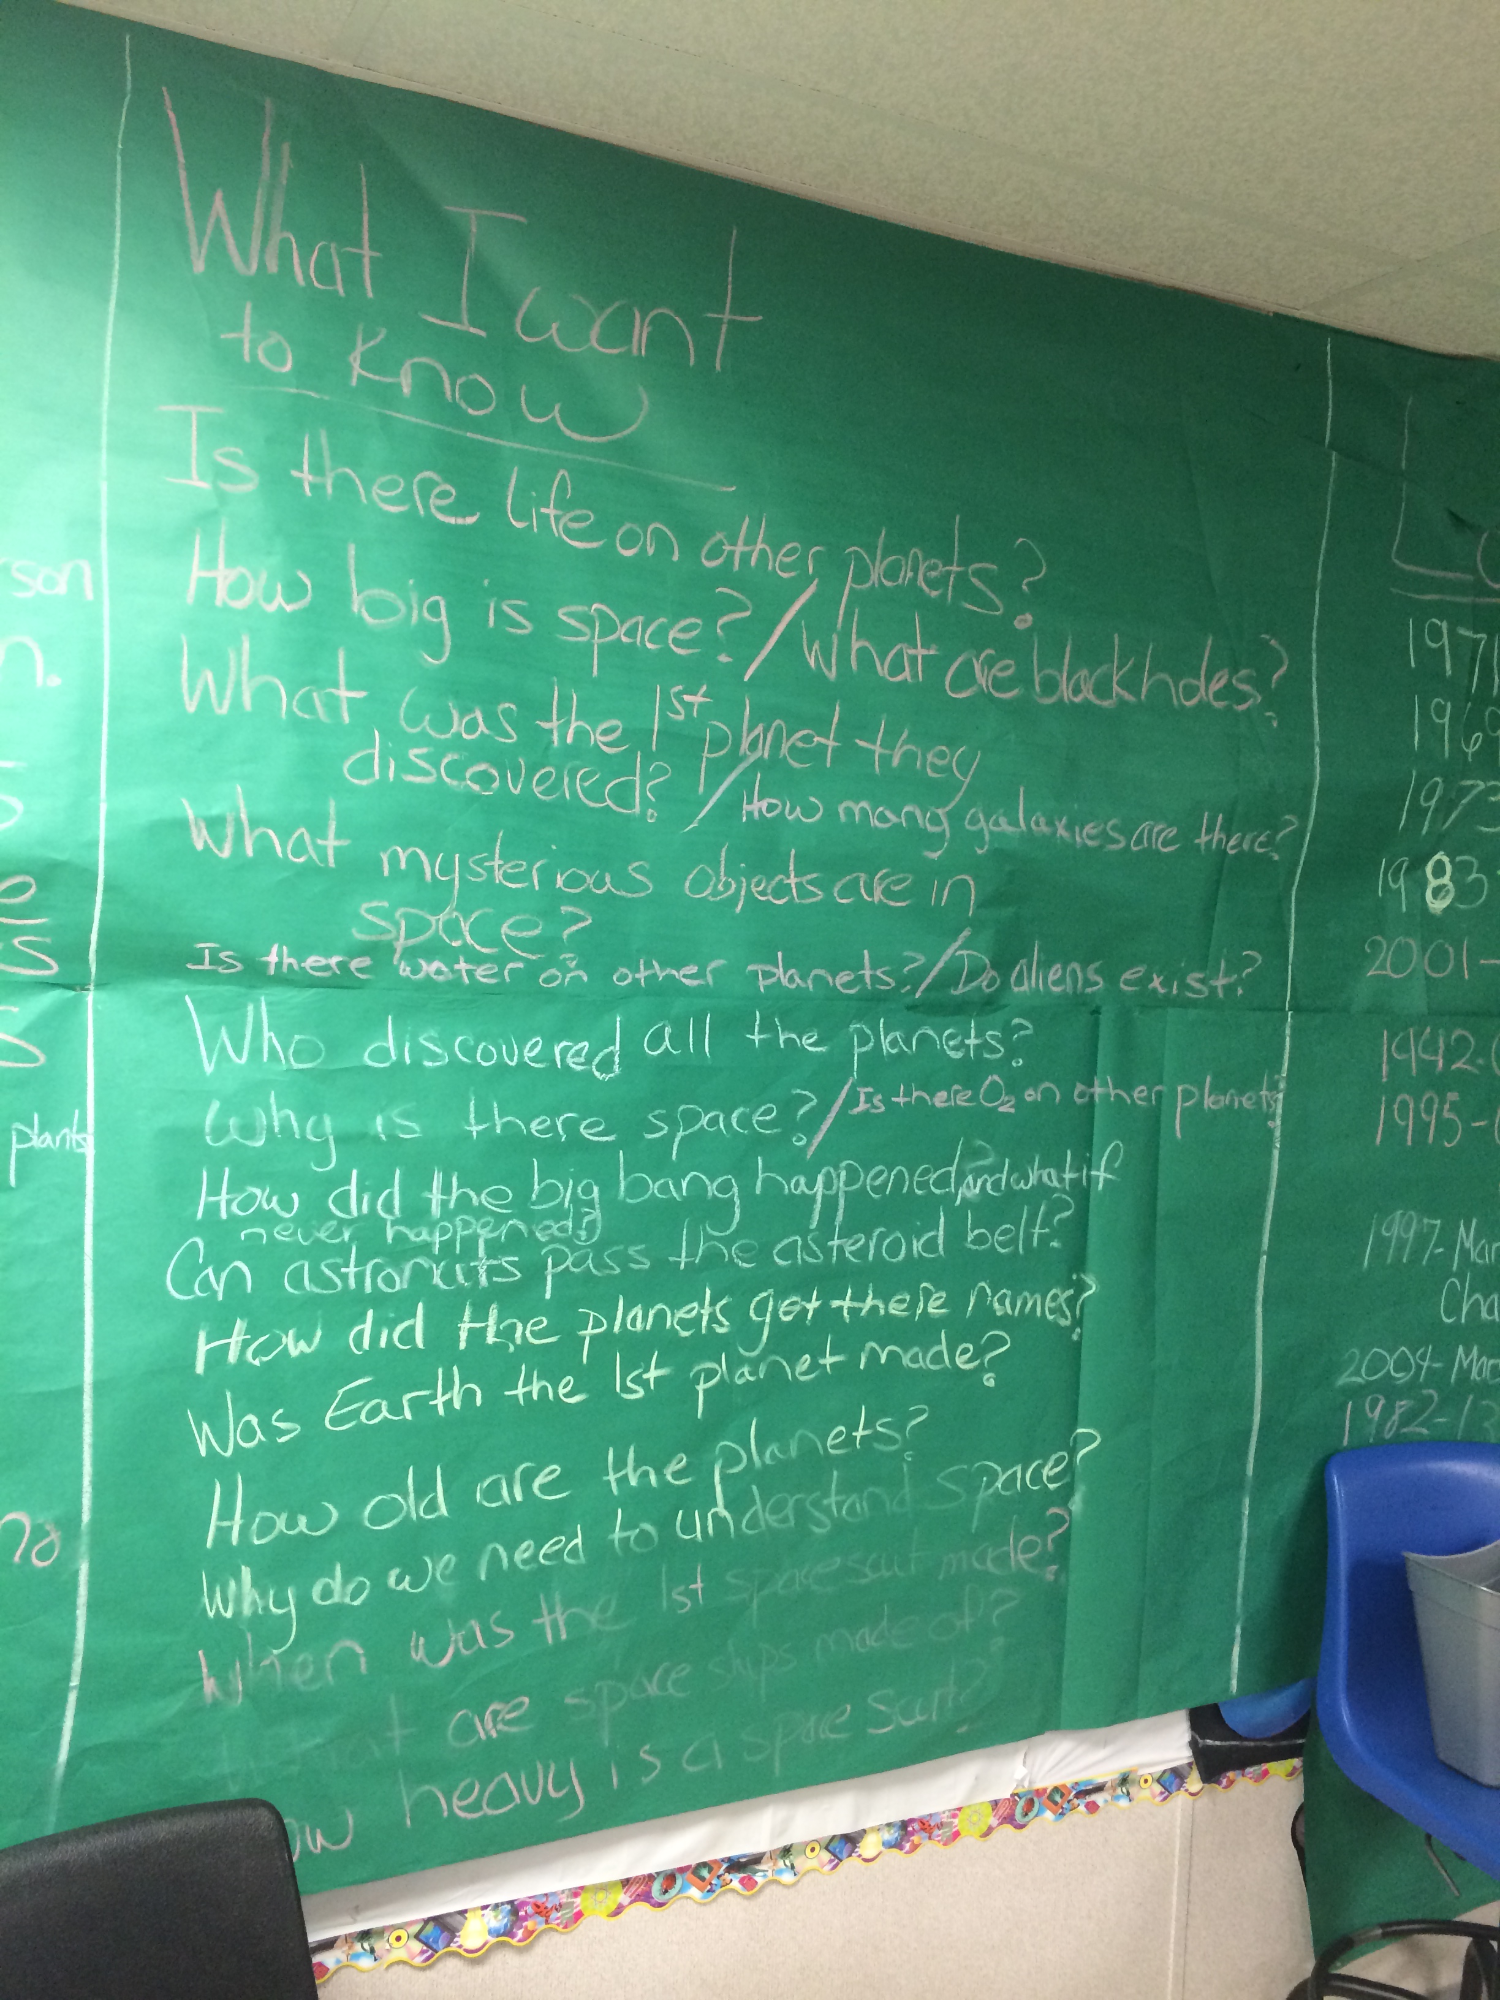 What I want
to Know
Is there life on other planets?
How big is space? / What are blackholes?
What was the 1st planet they
discovered? / How many galaxies are there?
What mysterious objects are in
space?
Is there water on other planets? / Do aliens exist?
Who discovered all the planets?
Why is there space? / Is there O2 on other planets?
How did the big bang happened, and what if
never happened?
Can astronauts pass the asteroid belt?
How did the planets get there names?
Was Earth the 1st planet made?
How old are the planets?
Why do we need to understand space?
When was the 1st space suit made?
What are space ships made of?
ow heavy is a space suit?
son
n.
plants
1971
1969
1973
1983
2001-
1942-
1995-
1997- Mar
Cha
2004- Mar
1982-13